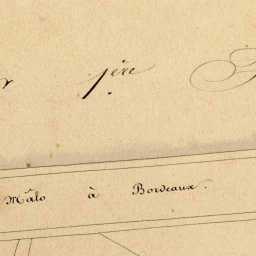 r 1ère
Mâlo à Bordeaux.